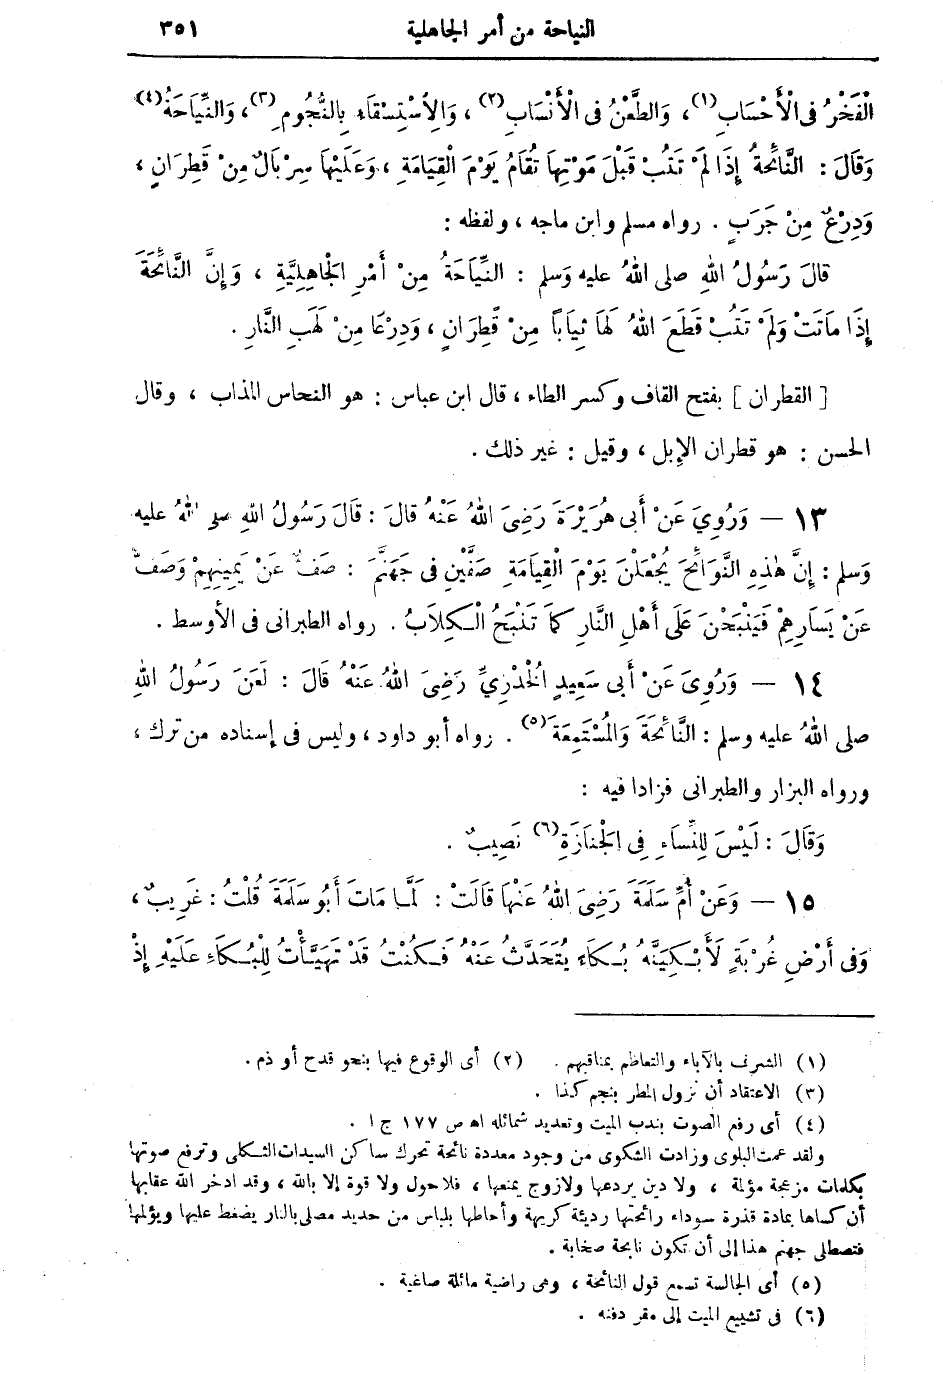 النياحة من أمر الجاهلية ٣٥١
الْفَخْرُ فِى الْأَحْسَابِ(١)، وَالطَّعْنُ فِى الْأَنْسَابِ(٢)، وَالِاسْتِسْقَاءُ بِالنُّجُومِ(٣)، وَالنِّيَاحَةُ(٤)
وَقَالَ : النَّائِحَةُ إِذَا لَمْ تَتُبْ قَبْلَ مَوْتِهَا تُقَامُ يَوْمَ الْقِيَامَةِ ، وَعَلَيْهَا سِرْبَالٌ مِنْ قَطِرَانٍ ،
وَدِرْعٌ مِنْ جَرَبٍ . رواه مسلم وابن ماجه ، ولفظه :
قالَ رَسُولُ اللهِ صلى اللهُ عليه وَسلم : النِّيَاحَةُ مِنْ أَمْرِ الْجَاهِلِيَّةِ ، وَإِنَّ النَّائِحَةَ
إِذَا مَاتَتْ وَلَمْ تَتُبْ قَطَعَ اللهُ لَهَا ثِيَاباً مِنْ قَطِرَانٍ ، وَدِرْعًا مِنْ لَهَبِ النَّارِ .
[ القطران ] بفتح القاف وكسر الطاء ، قال ابن عباس : هو النحاس المذاب ، وقال
الحسن : هو قطران الإبل ، وقيل : غير ذلك .
١٣ — وَرُوِيَ عَنْ أَبِى هُرَيْرَةَ رَضِىَ اللهُ عَنْهُ قالَ : قَالَ رَسُولُ اللهِ صلى اللهُ عليه
وَسلم : إِنَّ هٰذِهِ النَّوَائِحَ يُجْعَلْنَ يَوْمَ الْقِيَامَةِ صَفَّيْنِ فِى جَهَنَّمَ : صَفٌّ عَنْ يَمِينِهِمْ وَصَفٌّ
عَنْ يَسَارِهِمْ فَيَنْبَحْنَ عَلَى أَهْلِ النَّارِ كَمَا تَنْبَحُ الْكِلَابُ . رواه الطبرانى فى الأوسط .
١٤ — وَرُوِىَ عَنْ أَبِى سَعِيدٍ الْخُدْرِيِّ رَضِىَ اللهُ عَنْهُ قَالَ : لَعَنَ رَسُولُ اللهِ
صلى اللهُ عليه وسلم : النَّائِحَةَ وَالْمُسْتَمِعَةَ(٥) . رواه أبو داود ، وليس فى إسناده من ترك ،
ورواه البزار والطبرانى فزادا فيه :
وَقَالَ : لَيْسَ لِلنِّسَاءِ فِى الْجَنَازَةِ(٦) نَصِيبٌ .
١٥ — وَعَنْ أُمِّ سَلَمَةَ رَضِىَ اللهُ عَنْهَا قَالَتْ : لَمَّا مَاتَ أَبُو سَلَمَةَ قُلْتُ : غَرِيبٌ ،
وَفِى أَرْضِ غُرْبَةٍ لَأَبْكِيَنَّهُ بُكَاءً يُتَحَدَّثُ عَنْهُ فَكُنْتُ قَدْ تَهَيَّأْتُ لِلْبُكَاءِ عَلَيْهِ إِذْ
(١) الشرف بالآباء والتعاظم بمناقبهم . (٢) أى الوقوع فيها بنحو قدح أو ذم .
(٣) الاعتقاد أن نزول المطر بنجم كذا .
(٤) أى رفع الصوت بندب الميت وتعديد شمائله اه ص ١٧٧ ج ١ .
ولقد عمت البلوى وزادت الشكوى من وجود معددة نائحة تحرك ساكن السيدات الثكلى وترفع صوتها
بكلمات مزعجة مؤلمة ، ولا دين يردعها ولازوج يمنعها ، فلاحول ولا قوة إلا بالله ، وقد ادخر الله عقابها
أن كساها بمادة قذرة سوداء رائحتها رديئة كريهة وأحاطها بلباس من حديد مصلى بالنار يضغط عليها ويؤلمها
فتصطلى جهنم هذا إلى أن تكون نابحة صخابة .
(٥) أى الجالسة تسمع قول النائحة ، وهى راضية مائلة صاغية .
(٦) فى تشييع الميت إلى مقر دفنه .